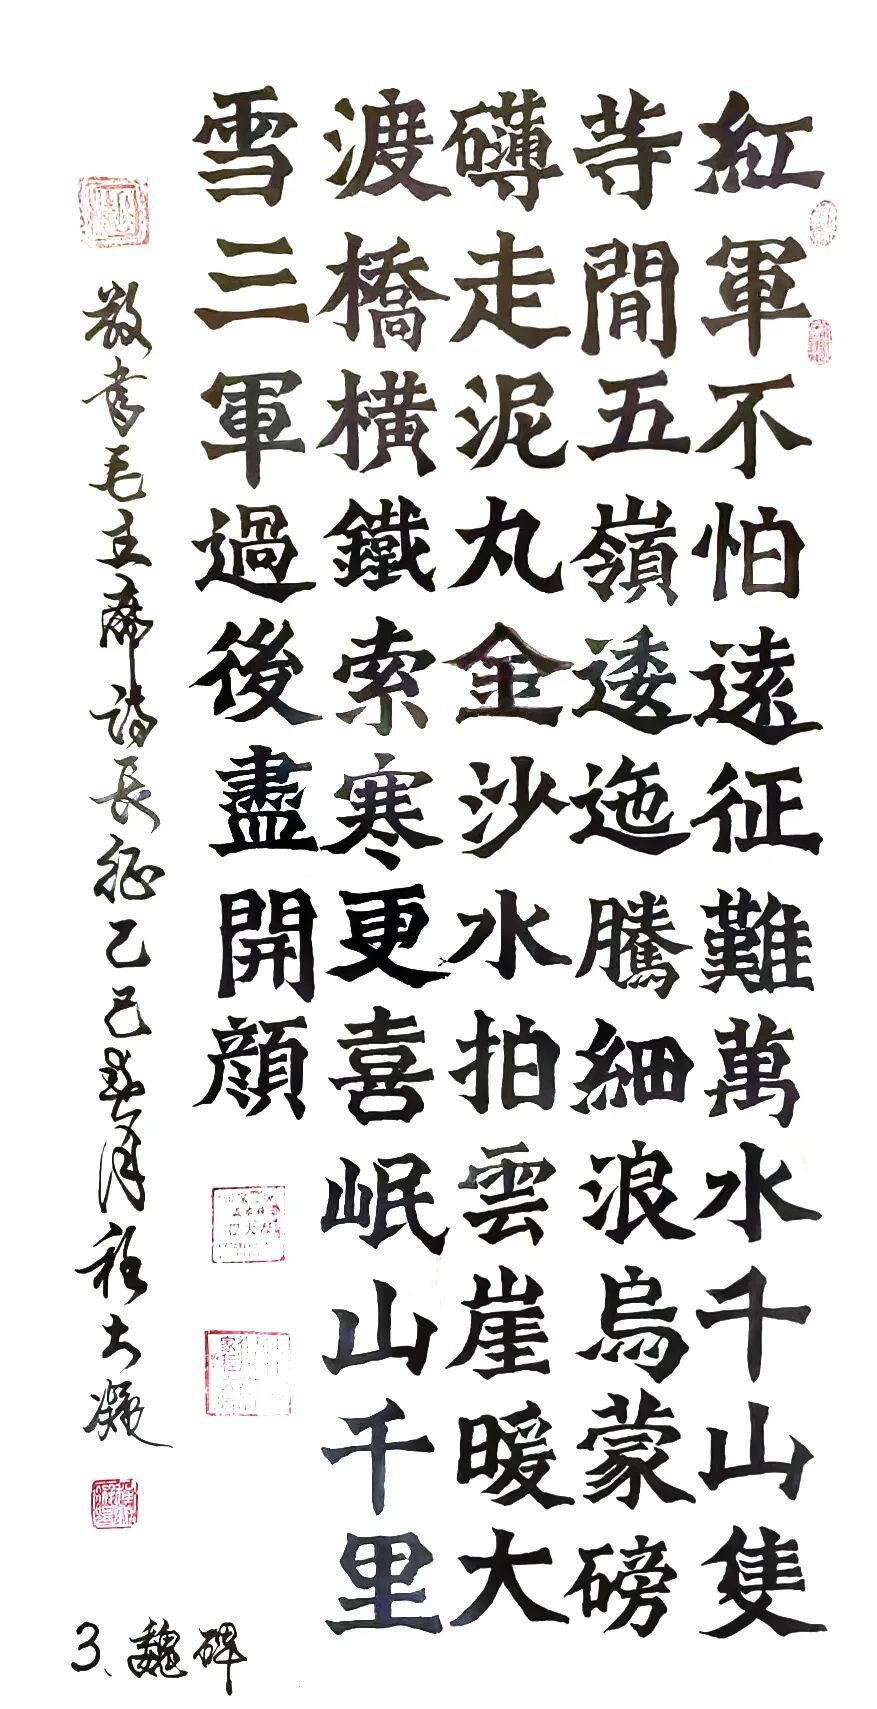 紅軍不怕遠征難萬水千山隻
等閒五嶺逶迤騰細浪烏蒙磅
礴走泥丸金沙水拍雲崖暖大
渡橋橫鐵索寒更喜岷山千里
雪三軍過後盡開顏
敬書毛主席詩長征乙巳春月程大凝
3、魏碑